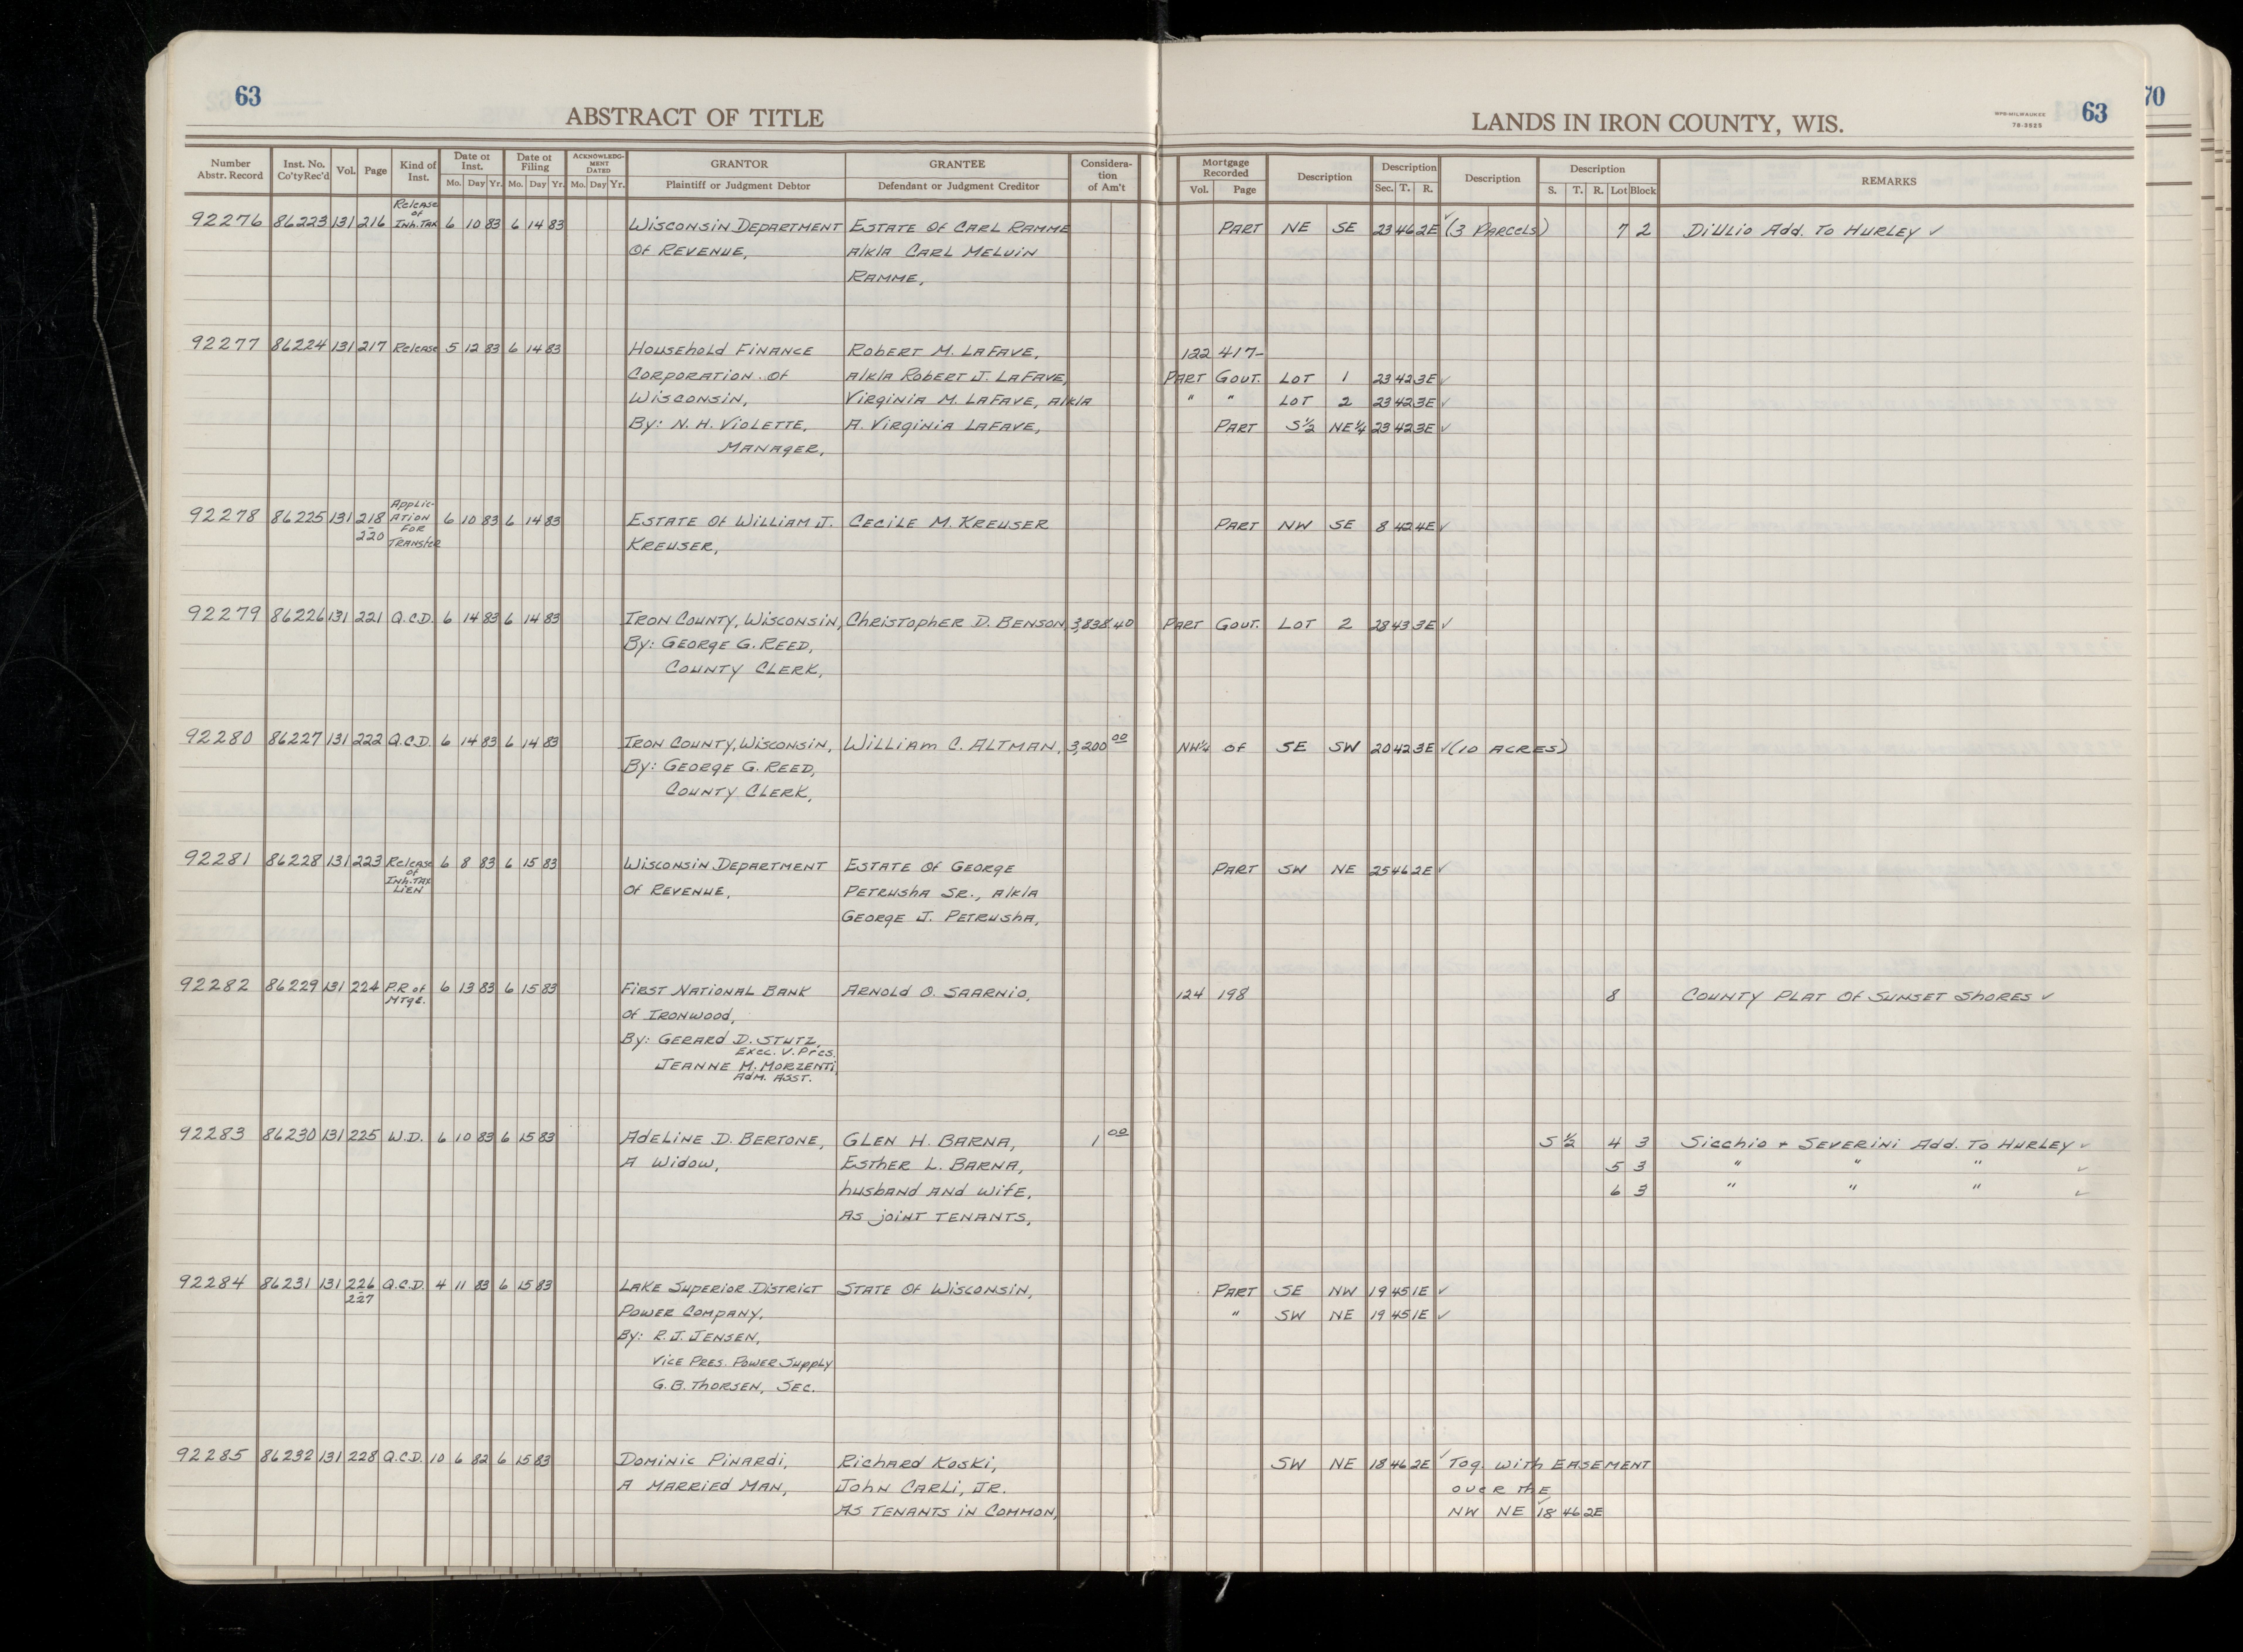 63
ABSTRACT OF TITLE
LANDS IN IRON COUNTY, WIS.
WPB-MILWAUKEE
78-3525
63
70
Number Abstr. Record | Inst. No. Co'ty Rec'd | Vol. | Page | Kind of Inst. | Date of Inst. Mo. Day Yr. | Date of Filing Mo. Day Yr. | ACKNOWLEDGMENT DATED Mo. Day Yr. | GRANTOR Plaintiff or Judgment Debtor | GRANTEE Defendant or Judgment Creditor | Consideration of Am't | Mortgage Recorded Vol. Page | Description | Description Sec. T. R. | Description | Description S. T. R. Lot Block | REMARKS
92276 86223 131 216 Release of Inh. Tax 6 10 83 6 14 83 Wisconsin Department Estate Of Carl Ramme Part NE SE 23 46 2E ✓ (3 Parcels) 7 2 DiUlio Add. To Hurley ✓
Of Revenue, a/k/a Carl Melvin
Ramme,
92277 86224 131 217 Release 5 12 83 6 14 83 Household Finance Robert M. LaFave, 122 417-
Corporation of a/k/a Robert J. LaFave, Part Gout. Lot 1 23 42 3E ✓
Wisconsin, Virginia M. LaFave, a/k/a " " Lot 2 23 42 3E ✓
By: N. H. Violette, A. Virginia LaFave, Part S½ NE¼ 23 42 3E ✓
Manager,
92278 86225 131 218-220 Application for Transfer 6 10 83 6 14 83 Estate Of William J. Cecile M. Kreuser Part NW SE 8 42 4E ✓
Kreuser,
92279 86226 131 221 Q.C.D. 6 14 83 6 14 83 Iron County, Wisconsin, Christopher D. Benson 3,838.40 Part Gout. Lot 2 28 43 3E ✓
By: George G. Reed,
County Clerk,
92280 86227 131 222 Q.C.D. 6 14 83 6 14 83 Iron County, Wisconsin, William C. Altman, 3,200 00 NW¼ of SE SW 20 42 3E ✓ (10 Acres)
By: George G. Reed,
County Clerk,
92281 86228 131 223 Release of Inh. Tax Lien 6 8 83 6 15 83 Wisconsin Department Estate Of George Part SW NE 25 46 2E ✓
Of Revenue, Petrusha Sr., a/k/a
George J. Petrusha,
92282 86229 131 224 P.R. of Mtge. 6 13 83 6 15 83 First National Bank Arnold O. Saarnio, 124 198 8 County Plat Of Sunset Shores ✓
Of Ironwood,
By: Gerard D. Stutz,
Exec. V. Pres.
Jeanne M. Morzenti,
Adm. Asst.
92283 86230 131 225 W.D. 6 10 83 6 15 83 Adeline D. Bertone, Glen H. Barna, 1 00 S ½ 4 3 Sicchio + Severini Add. To Hurley ✓
A Widow, Esther L. Barna, 5 3 " " " ✓
husband and wife, 6 3 " " " ✓
As joint tenants,
92284 86231 131 226-227 Q.C.D. 4 11 83 6 15 83 Lake Superior District State Of Wisconsin, Part SE NW 19 45 1E ✓
Power Company, " SW NE 19 45 1E ✓
By: R. J. Jensen,
Vice Pres. Power Supply
G. B. Thorsen, Sec.
92285 86232 131 228 Q.C.D. 10 6 82 6 15 83 Dominic Pinardi, Richard Koski, SW NE 18 46 2E ✓ Tog. with easement
A Married Man, John Carli, Jr. over the
As tenants in common, NW NE 18 46 2E ✓